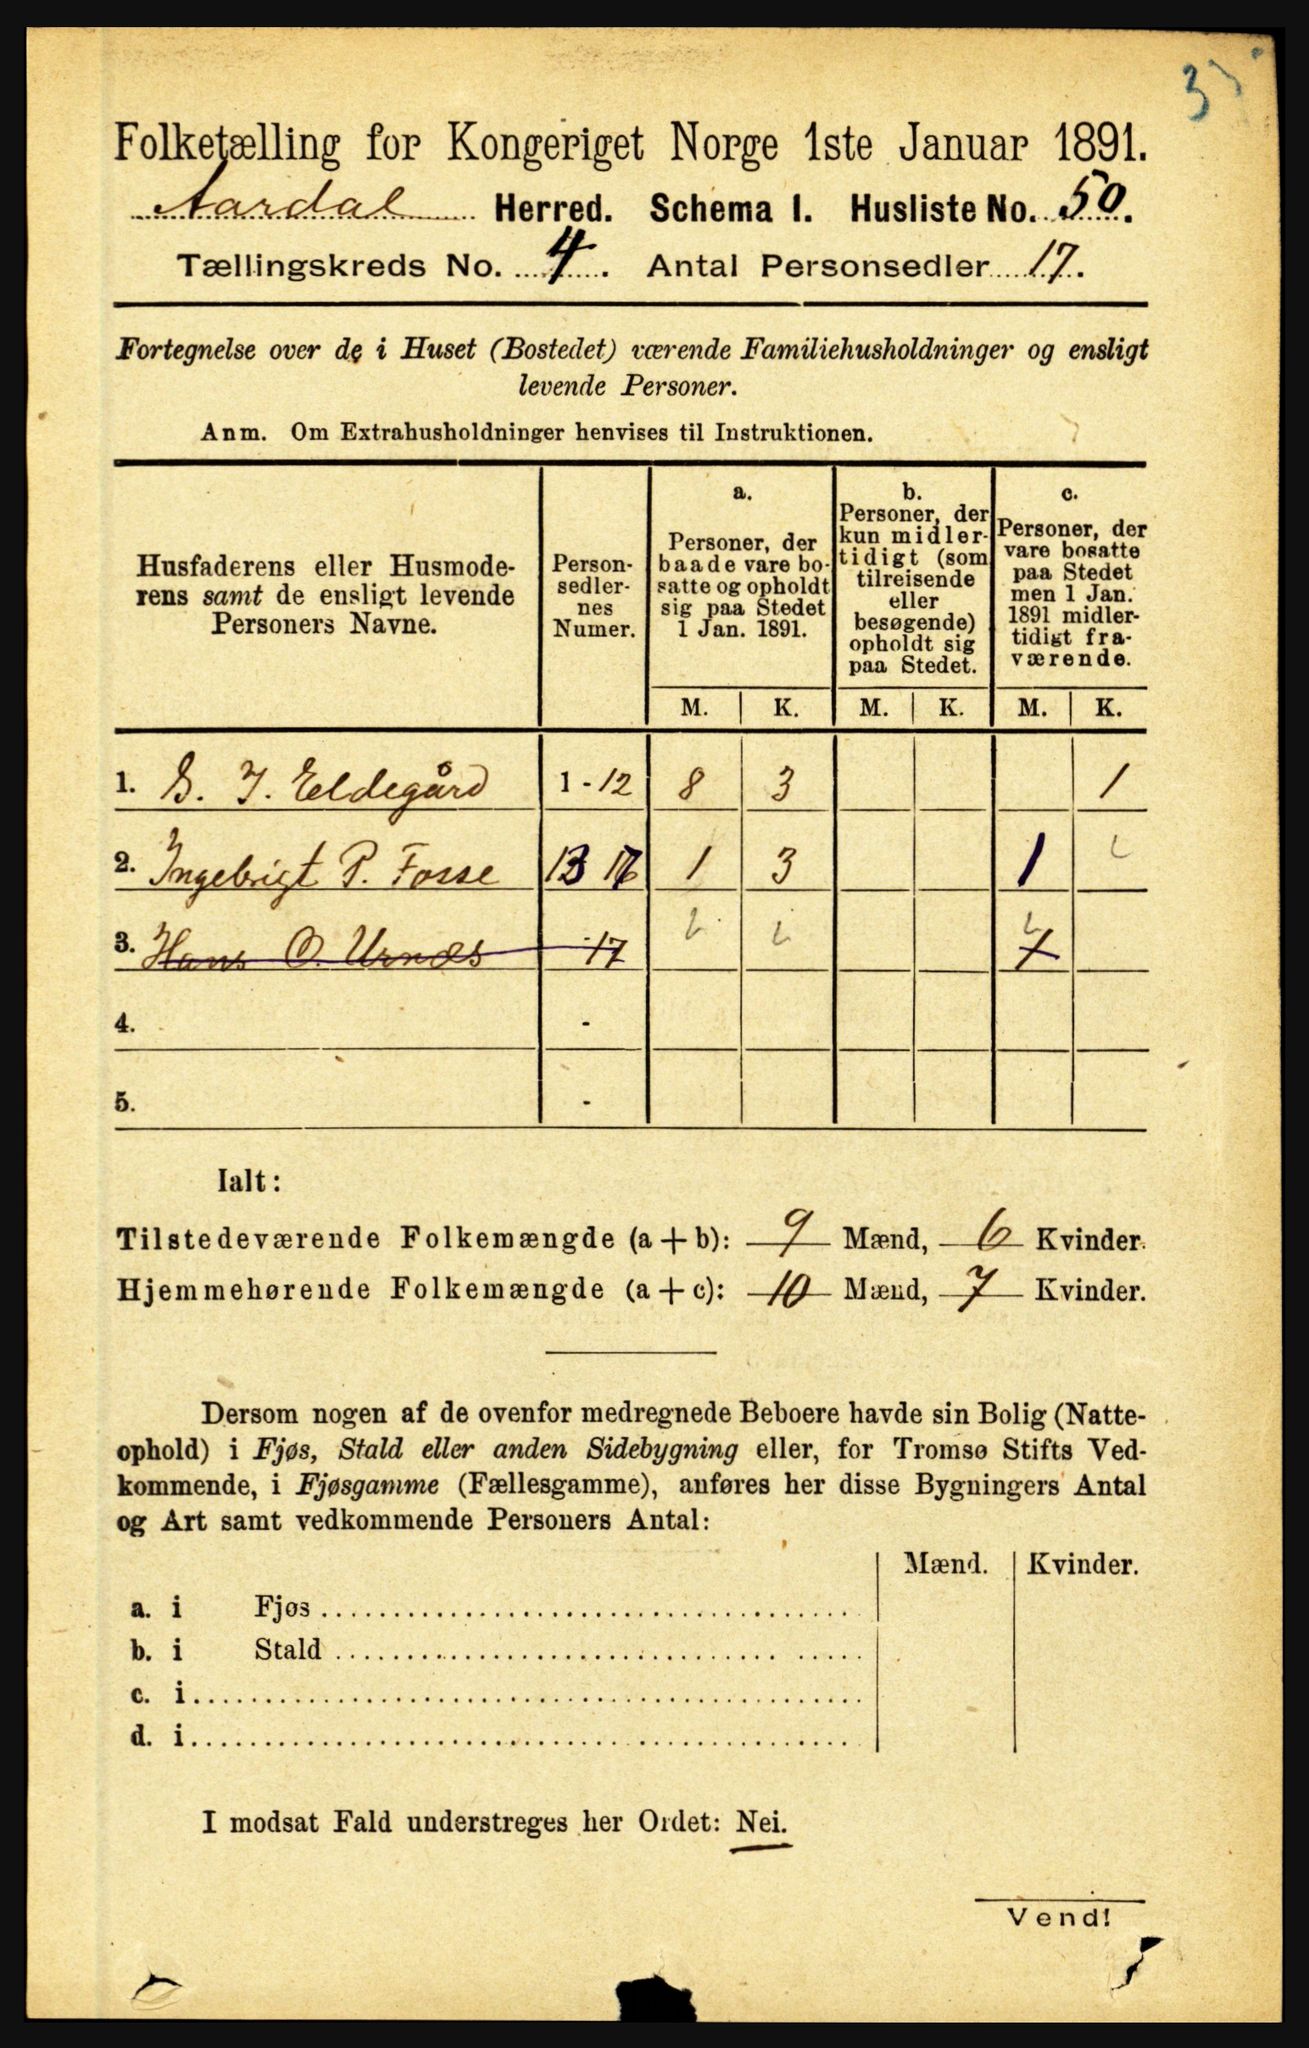 3
Folketælling for Kongeriget Norge 1ste Januar 1891.
Aardal Herred. Schema I. Husliste No. 50.
Tællingskreds No. 4. Antal Personsedler 17.
Fortegnelse over de i Huset (Bostedet) værende Familiehusholdninger og ensligt
levende Personer.
Anm. Om Extrahusholdninger henvises til Instruktionen.
Husfaderens eller Husmode-
rens samt de ensligt levende
Personers Navne.
Person-
sedler-
nes
Numer.
a.
Personer, der
baade vare bo-
satte og opholdt
sig paa Stedet
1 Jan. 1891.
b.
Personer, der
kun midler-
tidigt (som
tilreisende
eller
besøgende)
opholdt sig
paa Stedet.
c.
Personer, der
vare bosatte
paa Stedet
men 1 Jan.
1891 midler-
tidigt fra-
værende.
M. K. M. K. M. K.
1. B. J. Eldegård 1 - 12 8 3 1
2. Ingebrigt P. Fosse 13 1 3 1
3. Hans O. Urnæs 17
4. -
5. -
Ialt:
Tilstedeværende Folkemængde (a + b): 9 Mænd, 6 Kvinder.
Hjemmehørende Folkemængde (a + c): 10 Mænd, 7 Kvinder.
Dersom nogen af de ovenfor medregnede Beboere havde sin Bolig (Natte-
ophold) i Fjøs, Stald eller anden Sidebygning eller, for Tromsø Stifts Ved-
kommende, i Fjøsgamme (Fællesgamme), anføres her disse Bygningers Antal
og Art samt vedkommende Personers Antal:
Mænd. Kvinder.
a. i Fjøs
b. i Stald
c. i
d. i
I modsat Fald understreges her Ordet: Nei.
Vend!